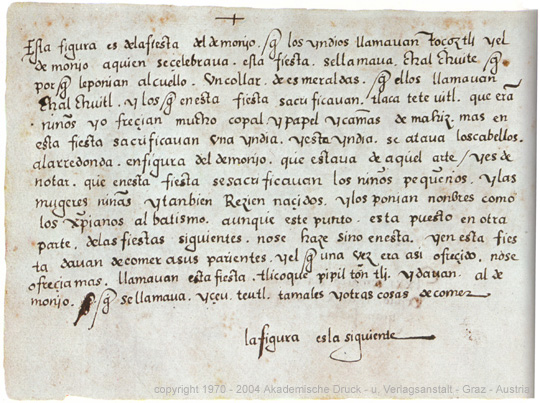 +
Esta figura es dela fiesta del demonjo. q̃ los yndios llamavan tocoztli yel
demonjo aquien secelebrava. esta fiesta. sellamava. chal chuite. q̃
porq̃ leponian alcuello. Un collar. de esmeraldas. q̃ ellos llamavan
chal chuitl. y los q̃ enesta fiesta sacrificavan. tlaca tete uitl. que erã
niños yo freçian mucho copal ypapel ycamas de mahiz. mas en
esta fiesta sacrificavan Una yndia. yesta yndia. se atava loscabellos.
alarredonda. enfigura del demonjo. que estava de aquel arte / yes de
notar. que enesta fiesta sesacrificavan los niños pequeños. ylas
mugeres niñas ytanbien Rezien naçidos. ylos ponian nonbres como
los xp̃ianos al batismo. aunque este punto. esta puesto en otra
parte. delas fiestas siguientes. nose haze sino enesta. yen esta fies
ta davan decomer asus parientes. yel q̃ una vez era asi ofreçido. nose
ofreçia mas. llamavan esta fiesta. tlicoque pipil tõn tli. ydavan. al de
monjo. q̃ sellamava. yçeu. teutl. tamales yotras cosas decomer
la figura esla siguiente
copyright 1970 - 2004 Akademische Druck - u. Verlagsanstalt - Graz - Austria